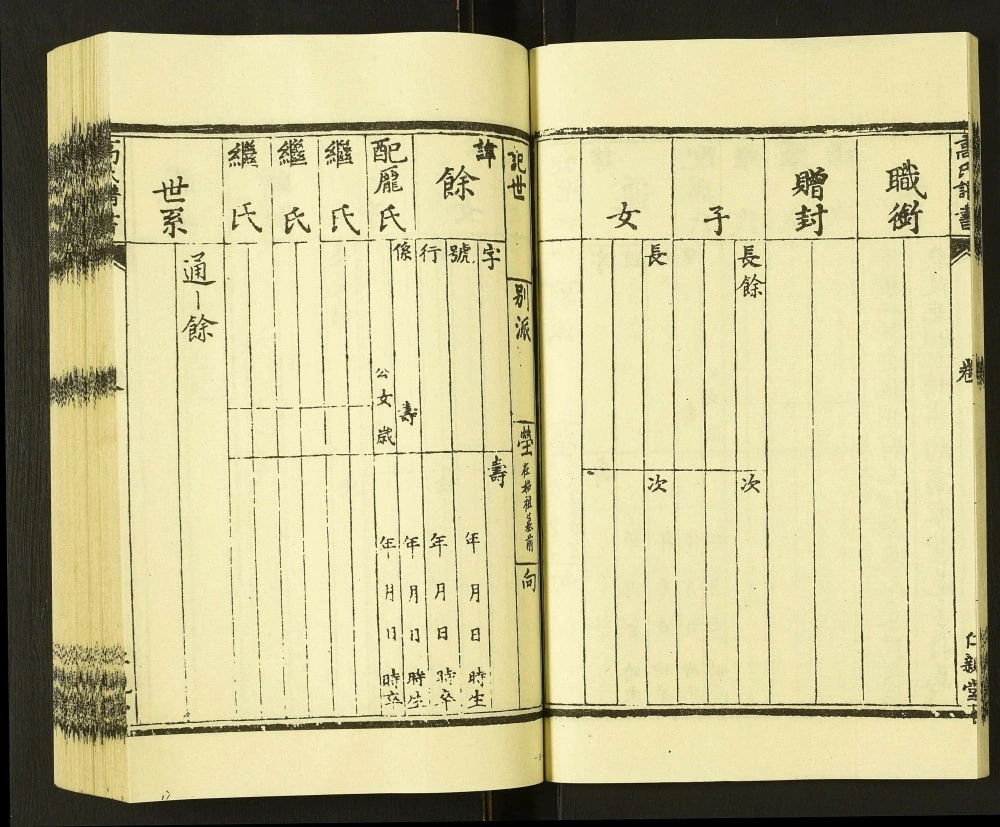 職銜
贈封
子
長餘
次
女
長
次
記世
別派
塋
在始祖墓前
向
諱餘
字
號
行
壽
年月日時生
年月日時卒
配龐氏
係
公女
壽
歲
年月日時生
年月日時卒
繼氏
繼氏
繼氏
世系
通一餘
氏譜書
卷
仁親堂